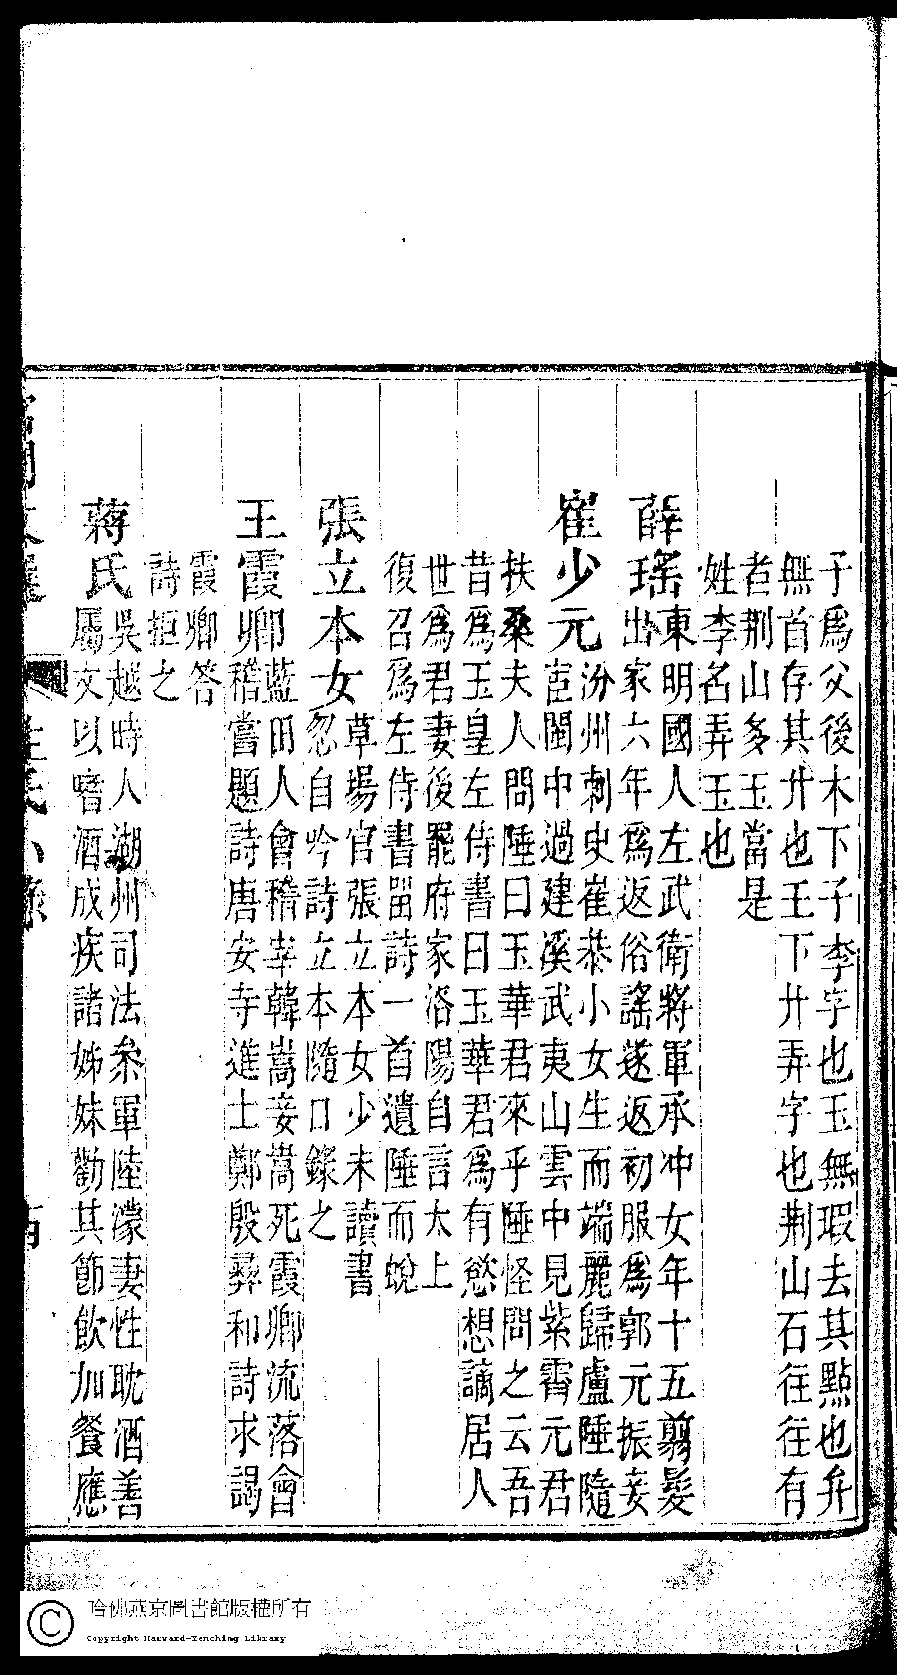 于爲父後木下子李字也玉無瑕去其點也弁
無首存其廾也王下廾弄字也荆山石往往有
者荆山多玉當是
姓李名弄玉也
薛瑤東明國人左武衛將軍承冲女年十五翦髮
出家六年爲返俗謠遂返初服爲郭元振妾
崔少元汾州刺史崔恭小女生而端麗歸盧陲隨
宦閩中過建溪武夷山雲中見紫霄元君
扶桑夫人問陲曰玉華君來乎陲怪問之云吾
昔爲玉皇左侍書曰玉華君爲有慾想謫居人
世爲君妻後罷府家洛陽自言太上
復召爲左侍書畱詩一首遺陲而蛻
張立本女草場官張立本女少未讀書
忽自吟詩立本隨口錄之
王霞卿藍田人會稽宰韓嵩妾嵩死霞卿流落會
稽嘗題詩唐安寺進士鄭殷彝和詩求謁
霞卿答
詩拒之
蔣氏吳越時人湖州司法叅軍陸濛妻性耽酒善
屬文以嗜酒成疾諸姊妹勸其節飲加餐應
姓氏小錄
哈佛燕京圖書館版權所有
Copyright Harvard-Yenching Library